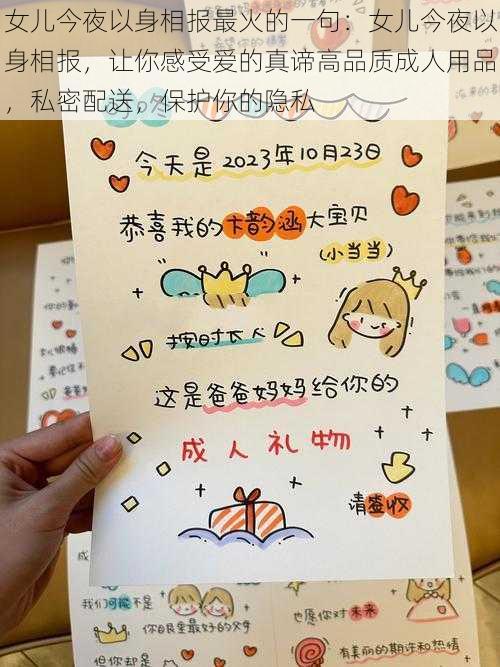 女儿今夜以身相报最火的一句：女儿今夜以
身相报，让你感受爱的真谛高品质成人用品
，私密配送，保护你的隐私
今天是2023年10月23日
恭喜我的卞韵涵大宝贝
（小当当）
按时长人
这是爸爸妈妈给你的
成人礼物
请签收
我们可能不是
你的民里最好的父母
但你却是
也愿你对未来
有美丽的期许和热情